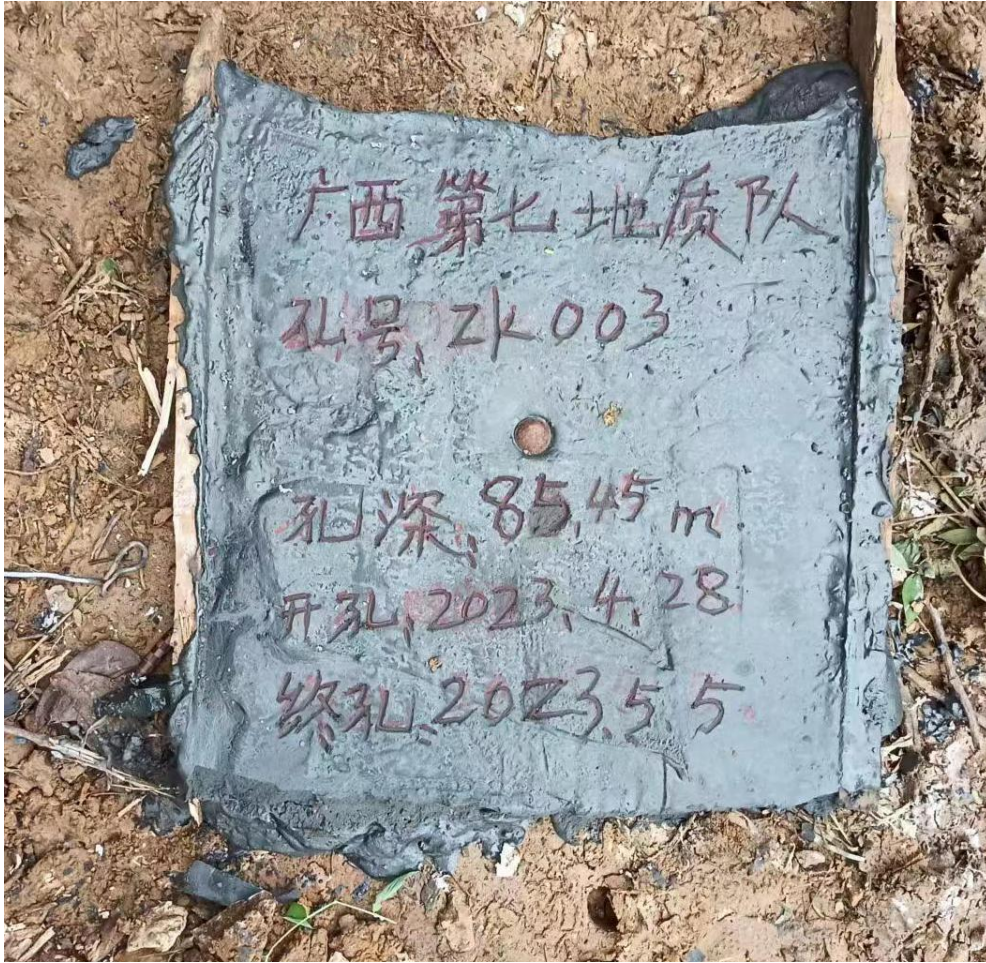 广西第七地质队
孔号：ZK003
孔深：85.45m
开孔：2023.4.28
终孔：2023.5.5